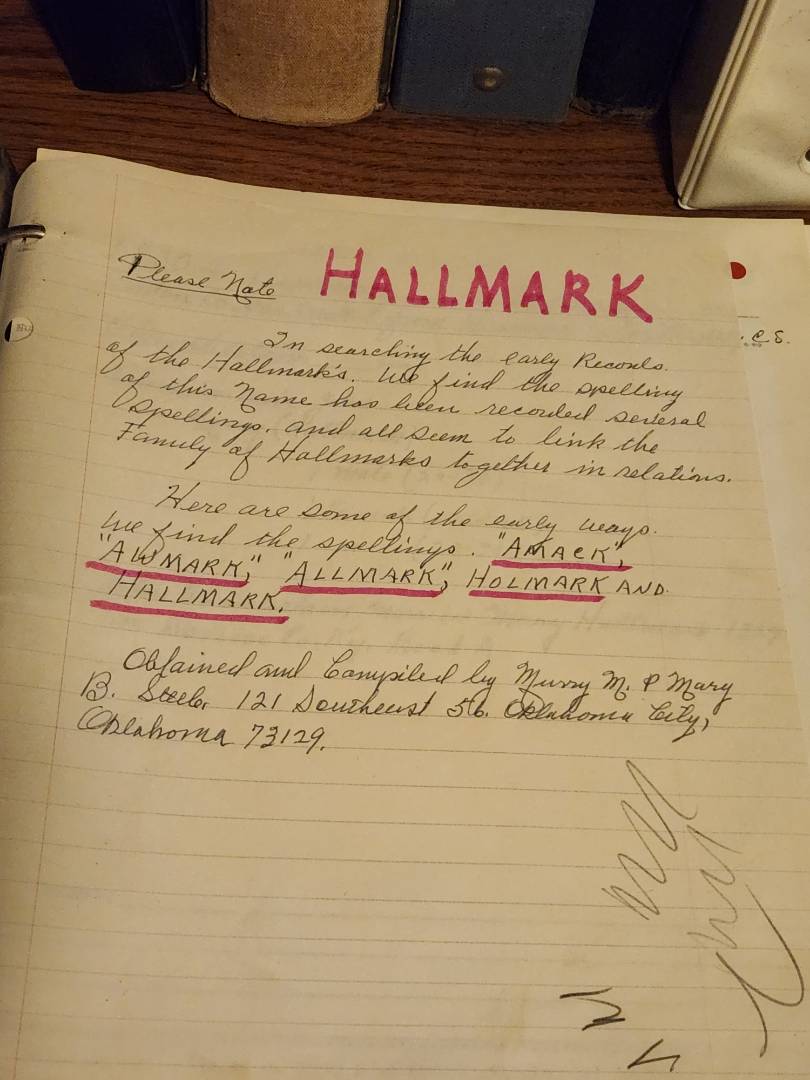 Please Note HALLMARK
In searching the early Records.
of the Hallmark's. We find the spelling
of this Name has been recorded several
spellings. and all seem to link the
Family of Hallmarks together in relations.
Here are some of the early ways.
we find the spellings. "AMACK",
"AWMARK," "ALLMARK", HOLMARK AND
HALLMARK.
Obtained and Compiled by Murry M. & Mary
B. Steele, 121 Southeast 56. Oklahoma City,
Oklahoma 73129.